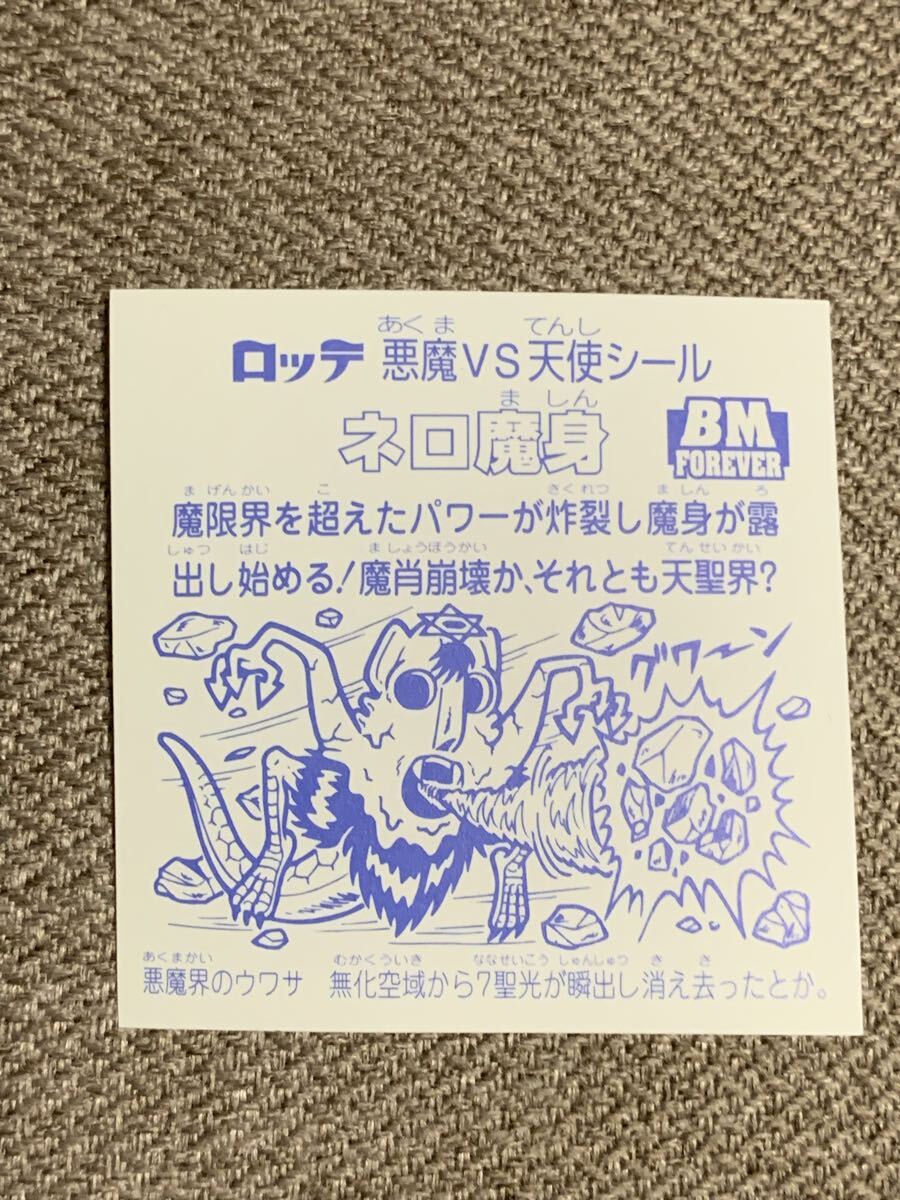 あくま てんし
ロッテ 悪魔VS天使シール
ましん
ネロ魔身
BM
FOREVER
まげんかい こ さくれつ ましん ろ
魔限界を超えたパワーが炸裂し魔身が露
しゅつ はじ ましょうほうかい てんせいかい
出し始める!魔肖崩壊か、それとも天聖界?
グワーン
あくまかい むかくういき ななせいこう しゅんしゅつ き さ
悪魔界のウワサ 無化空域から7聖光が瞬出し消え去ったとか。